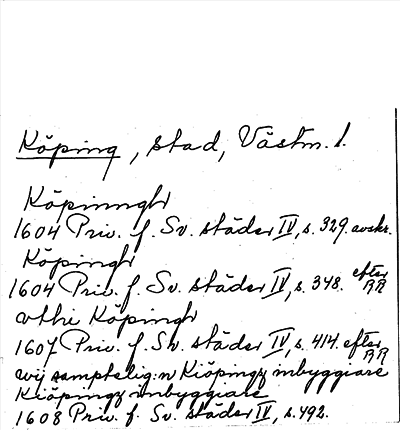 Köping, stad, Västm. l.
Köpinngh
1604 Priv. f. Sv. städer IV, s. 329. avskr.
Köpingh
1604 Priv. f. Sv. städer IV, s. 348. efter RR
vthi Köpingh
1607 Priv. f. Sv. städer IV, s. 414. efter RR
wij samptelig:n Kiöpingz inbyggiare
Kiöpingz inbyggiare
1608 Priv. f. Sv. städer IV, s. 492.